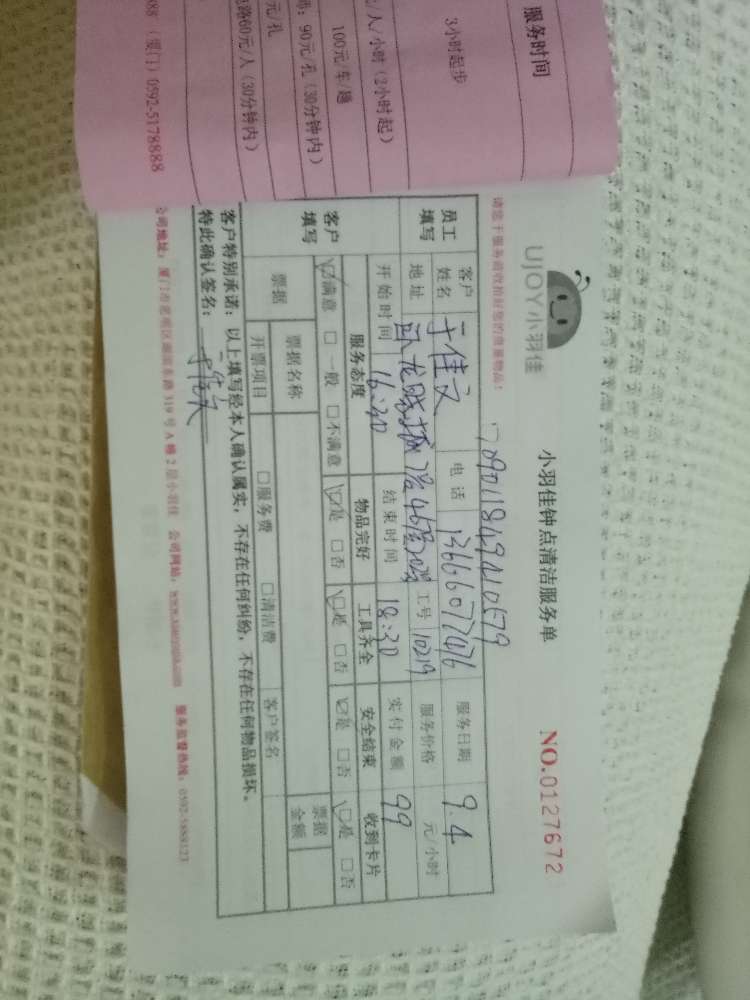 服务时间
3小时起步
/人/小时(2小时起)
100元/车/趟
90元/孔(30分钟内)
元/孔
路60元/人(30分钟内)
(厦门)0592-5178888
UJOY小羽佳
小羽佳钟点清洁服务单
NO.0127672
请您于服务前收拾好您的贵重物品!
员工填写
客户姓名 于佳文 电话 13666077076 服务日期 9.4
地址 卧龙晓城 工号 10219 服务价格 元/小时
开始时间 16:30 结束时间 18:30 实付金额 99
客户填写
服务态度 物品完好 工具齐全 安全结束 收到卡片
☑满意 □一般 □不满意 ☑是 □否 ☑是 □否 ☑是 □否 ☑是 □否
票据 票据名称 票据金额
开票项目 □服务费 □清洁费 客户签名
客户特别承诺:以上填写经本人确认属实,不存在任何纠纷,不存在任何物品损坏。
特此确认签名: 于佳文
公司地址:厦门市思明区湖滨东路319号A幢2层小羽佳 公司网站: 服务监督热线: